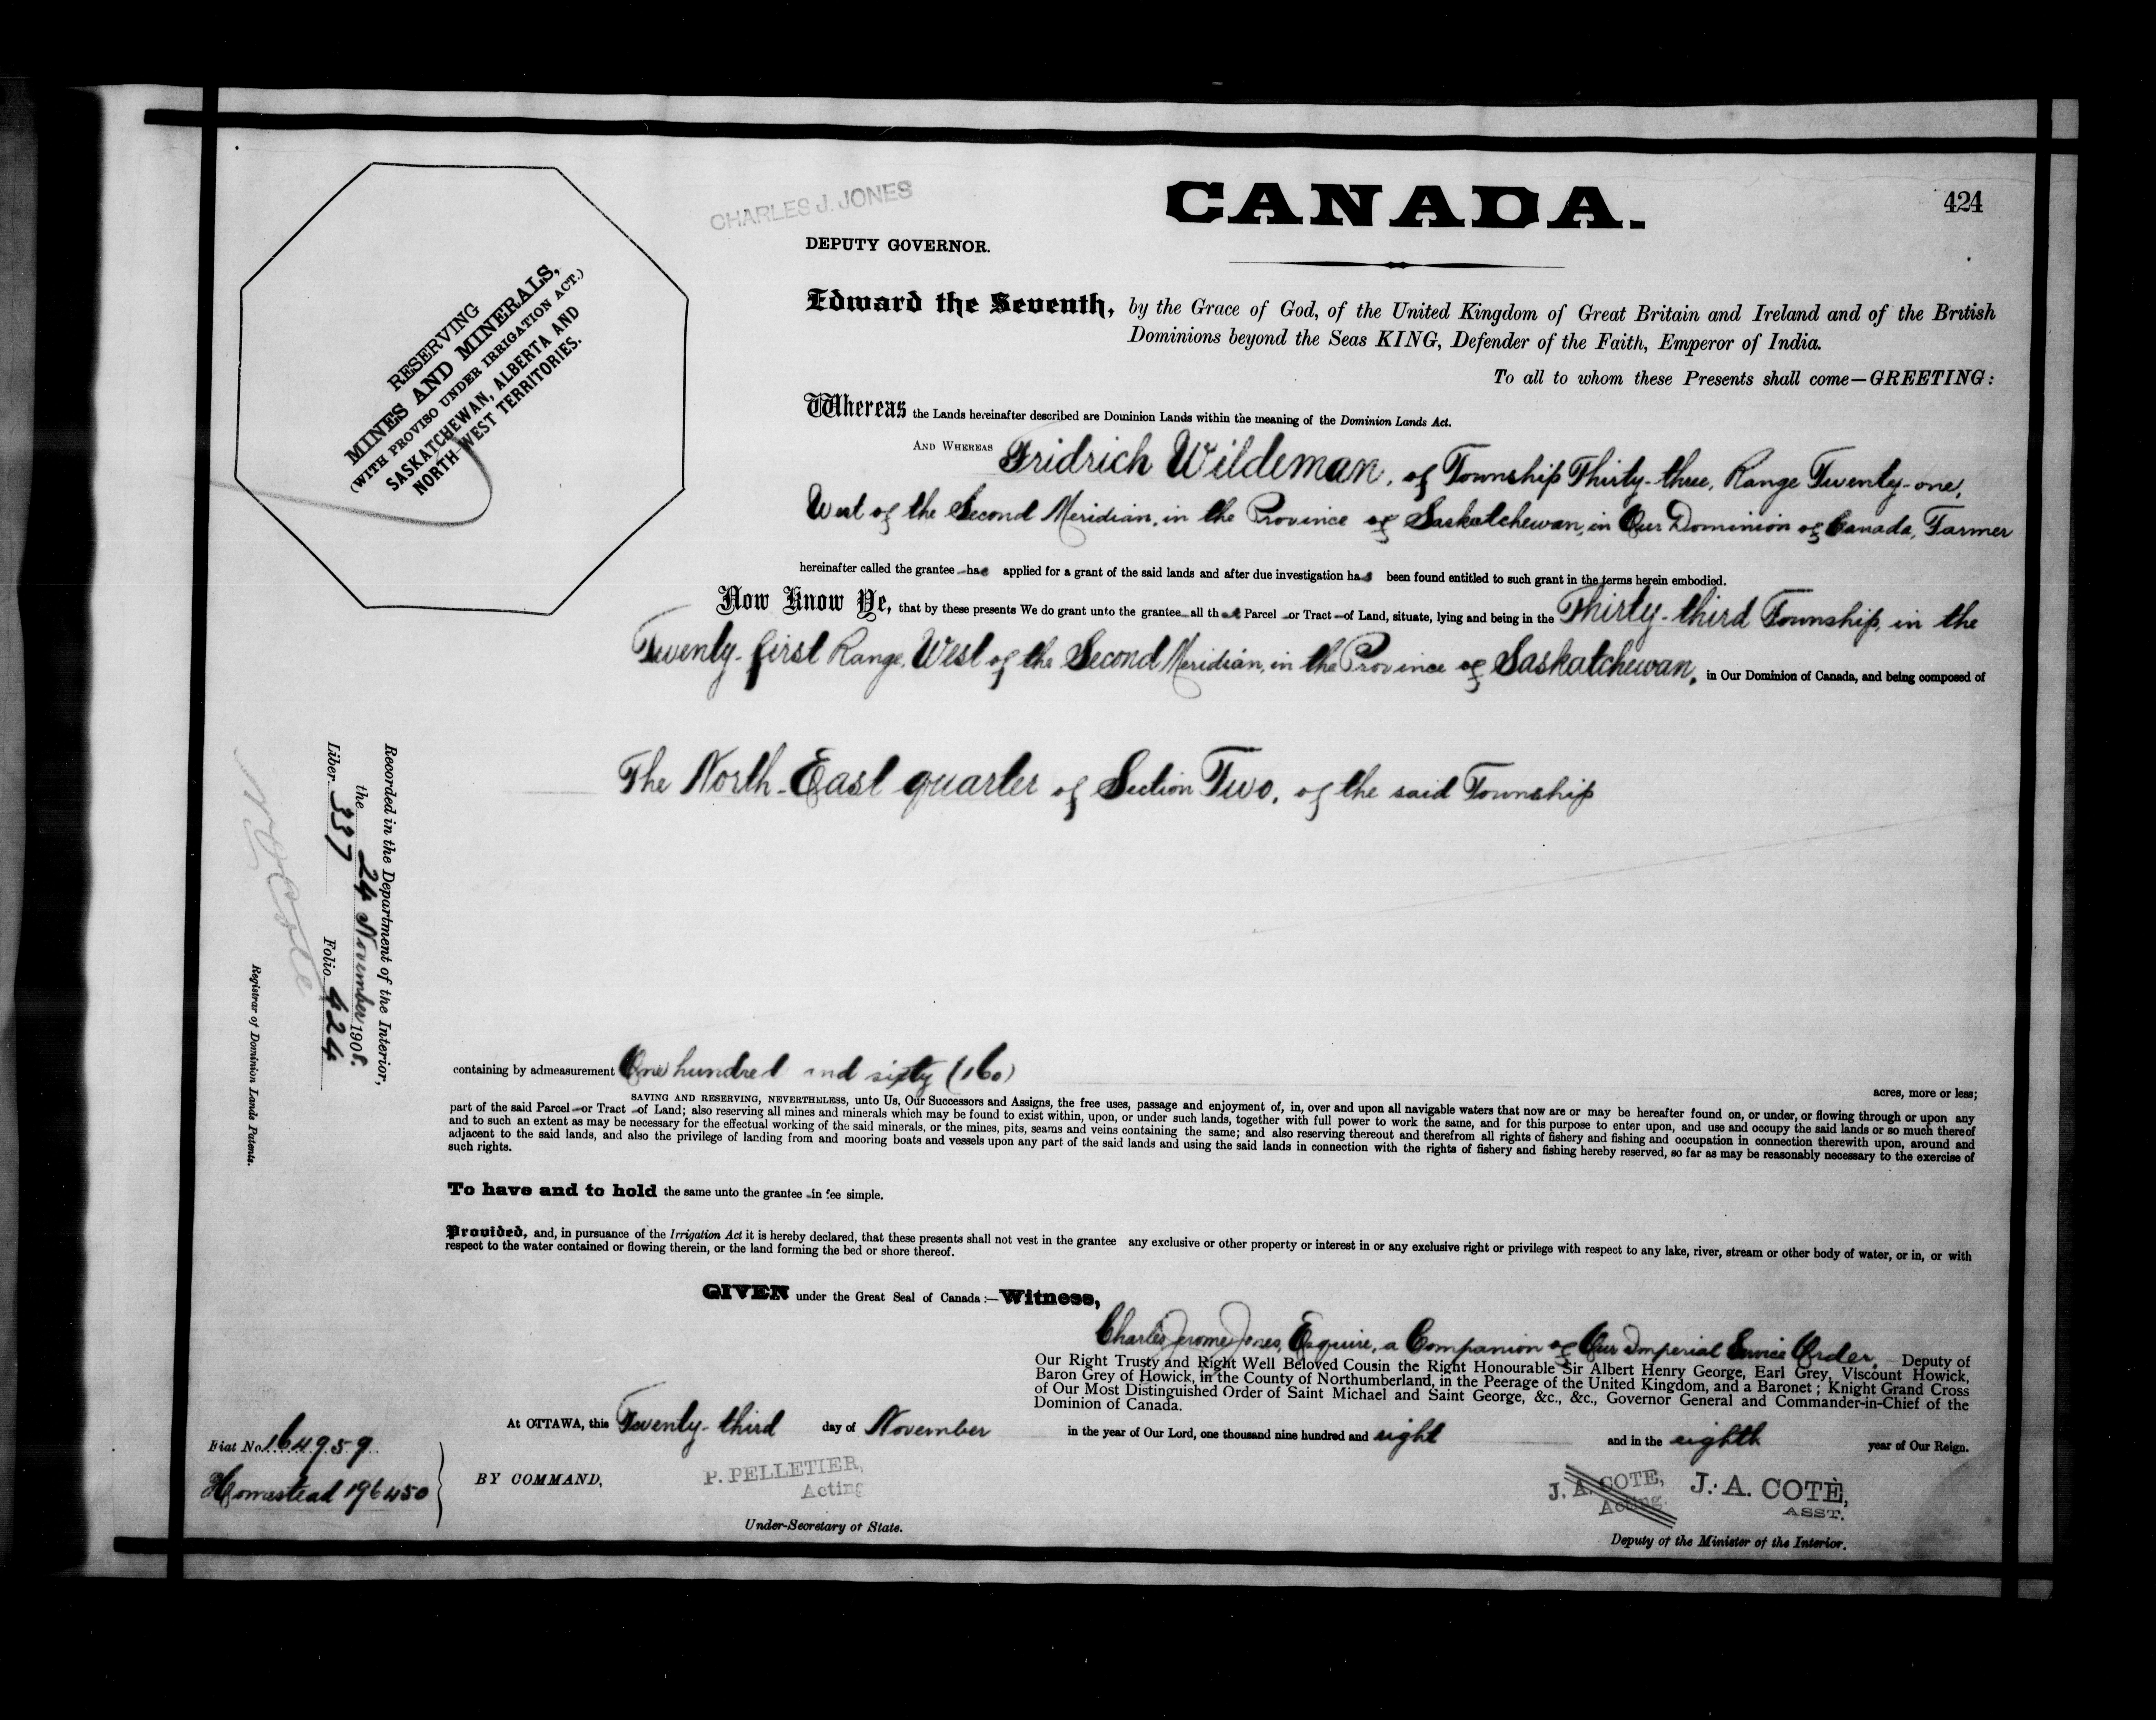 CANADA.
424
CHARLES J. JONES
DEPUTY GOVERNOR.
RESERVING
MINES AND MINERALS,
(WITH PROVISO UNDER IRRIGATION ACT.)
SASKATCHEWAN, ALBERTA AND
NORTH-WEST TERRITORIES.
Edward the Seventh, by the Grace of God, of the United Kingdom of Great Britain and Ireland and of the British
Dominions beyond the Seas KING, Defender of the Faith, Emperor of India.
To all to whom these Presents shall come—GREETING:
Whereas the Lands hereinafter described are Dominion Lands within the meaning of the Dominion Lands Act.
AND WHEREAS Fridrich Wildeman, of Township Thirty-three, Range Twenty-one,
West of the Second Meridian, in the Province of Saskatchewan, in Our Dominion of Canada, Farmer
hereinafter called the grantee has applied for a grant of the said lands and after due investigation has been found entitled to such grant in the terms herein embodied.
Now Know Ye, that by these presents We do grant unto the grantee all that Parcel or Tract of Land, situate, lying and being in the Thirty-third Township, in the
Twenty-first Range, West of the Second Meridian, in the Province of Saskatchewan, in Our Dominion of Canada, and being composed of
The North-East quarter of Section Two, of the said Township
Recorded in the Department of the Interior,
the 24 November 1908.
Liber 337 Folio 424
N O Cote
Registrar of Dominion Lands Patents.
containing by admeasurement One hundred and sixty (160) acres, more or less;
SAVING AND RESERVING, NEVERTHELESS, unto Us, Our Successors and Assigns, the free uses, passage and enjoyment of, in, over and upon all navigable waters that now are or may be hereafter found on, or under, or flowing through or upon any
part of the said Parcel or Tract of Land; also reserving all mines and minerals which may be found to exist within, upon, or under such lands, together with full power to work the same, and for this purpose to enter upon, and use and occupy the said lands or so much thereof
and to such an extent as may be necessary for the effectual working of the said minerals, or the mines, pits, seams and veins containing the same; and also reserving thereout and therefrom all rights of fishery and fishing and occupation in connection therewith upon, around and
adjacent to the said lands, and also the privilege of landing from and mooring boats and vessels upon any part of the said lands and using the said lands in connection with the rights of fishery and fishing hereby reserved, so far as may be reasonably necessary to the exercise of
such rights.
To have and to hold the same unto the grantee in fee simple.
Provided, and, in pursuance of the Irrigation Act it is hereby declared, that these presents shall not vest in the grantee any exclusive or other property or interest in or any exclusive right or privilege with respect to any lake, river, stream or other body of water, or in, or with
respect to the water contained or flowing therein, or the land forming the bed or shore thereof.
GIVEN under the Great Seal of Canada:—Witness,
Charles Jerome Jones, Esquire, a Companion of Our Imperial Service Order, Deputy of
Our Right Trusty and Right Well Beloved Cousin the Right Honourable Sir Albert Henry George, Earl Grey, Viscount Howick,
Baron Grey of Howick, in the County of Northumberland, in the Peerage of the United Kingdom, and a Baronet; Knight Grand Cross
of Our Most Distinguished Order of Saint Michael and Saint George, &c., &c., Governor General and Commander-in-Chief of the
Dominion of Canada.
At OTTAWA, this Twenty-third day of November in the year of Our Lord, one thousand nine hundred and eight and in the eighth year of Our Reign.
Fiat No. 164959
Homestead 196450
BY COMMAND,
P. PELLETIER,
Acting
Under-Secretary of State.
J. A. COTE,
Acting.
J. A. COTÈ,
ASST.
Deputy of the Minister of the Interior.